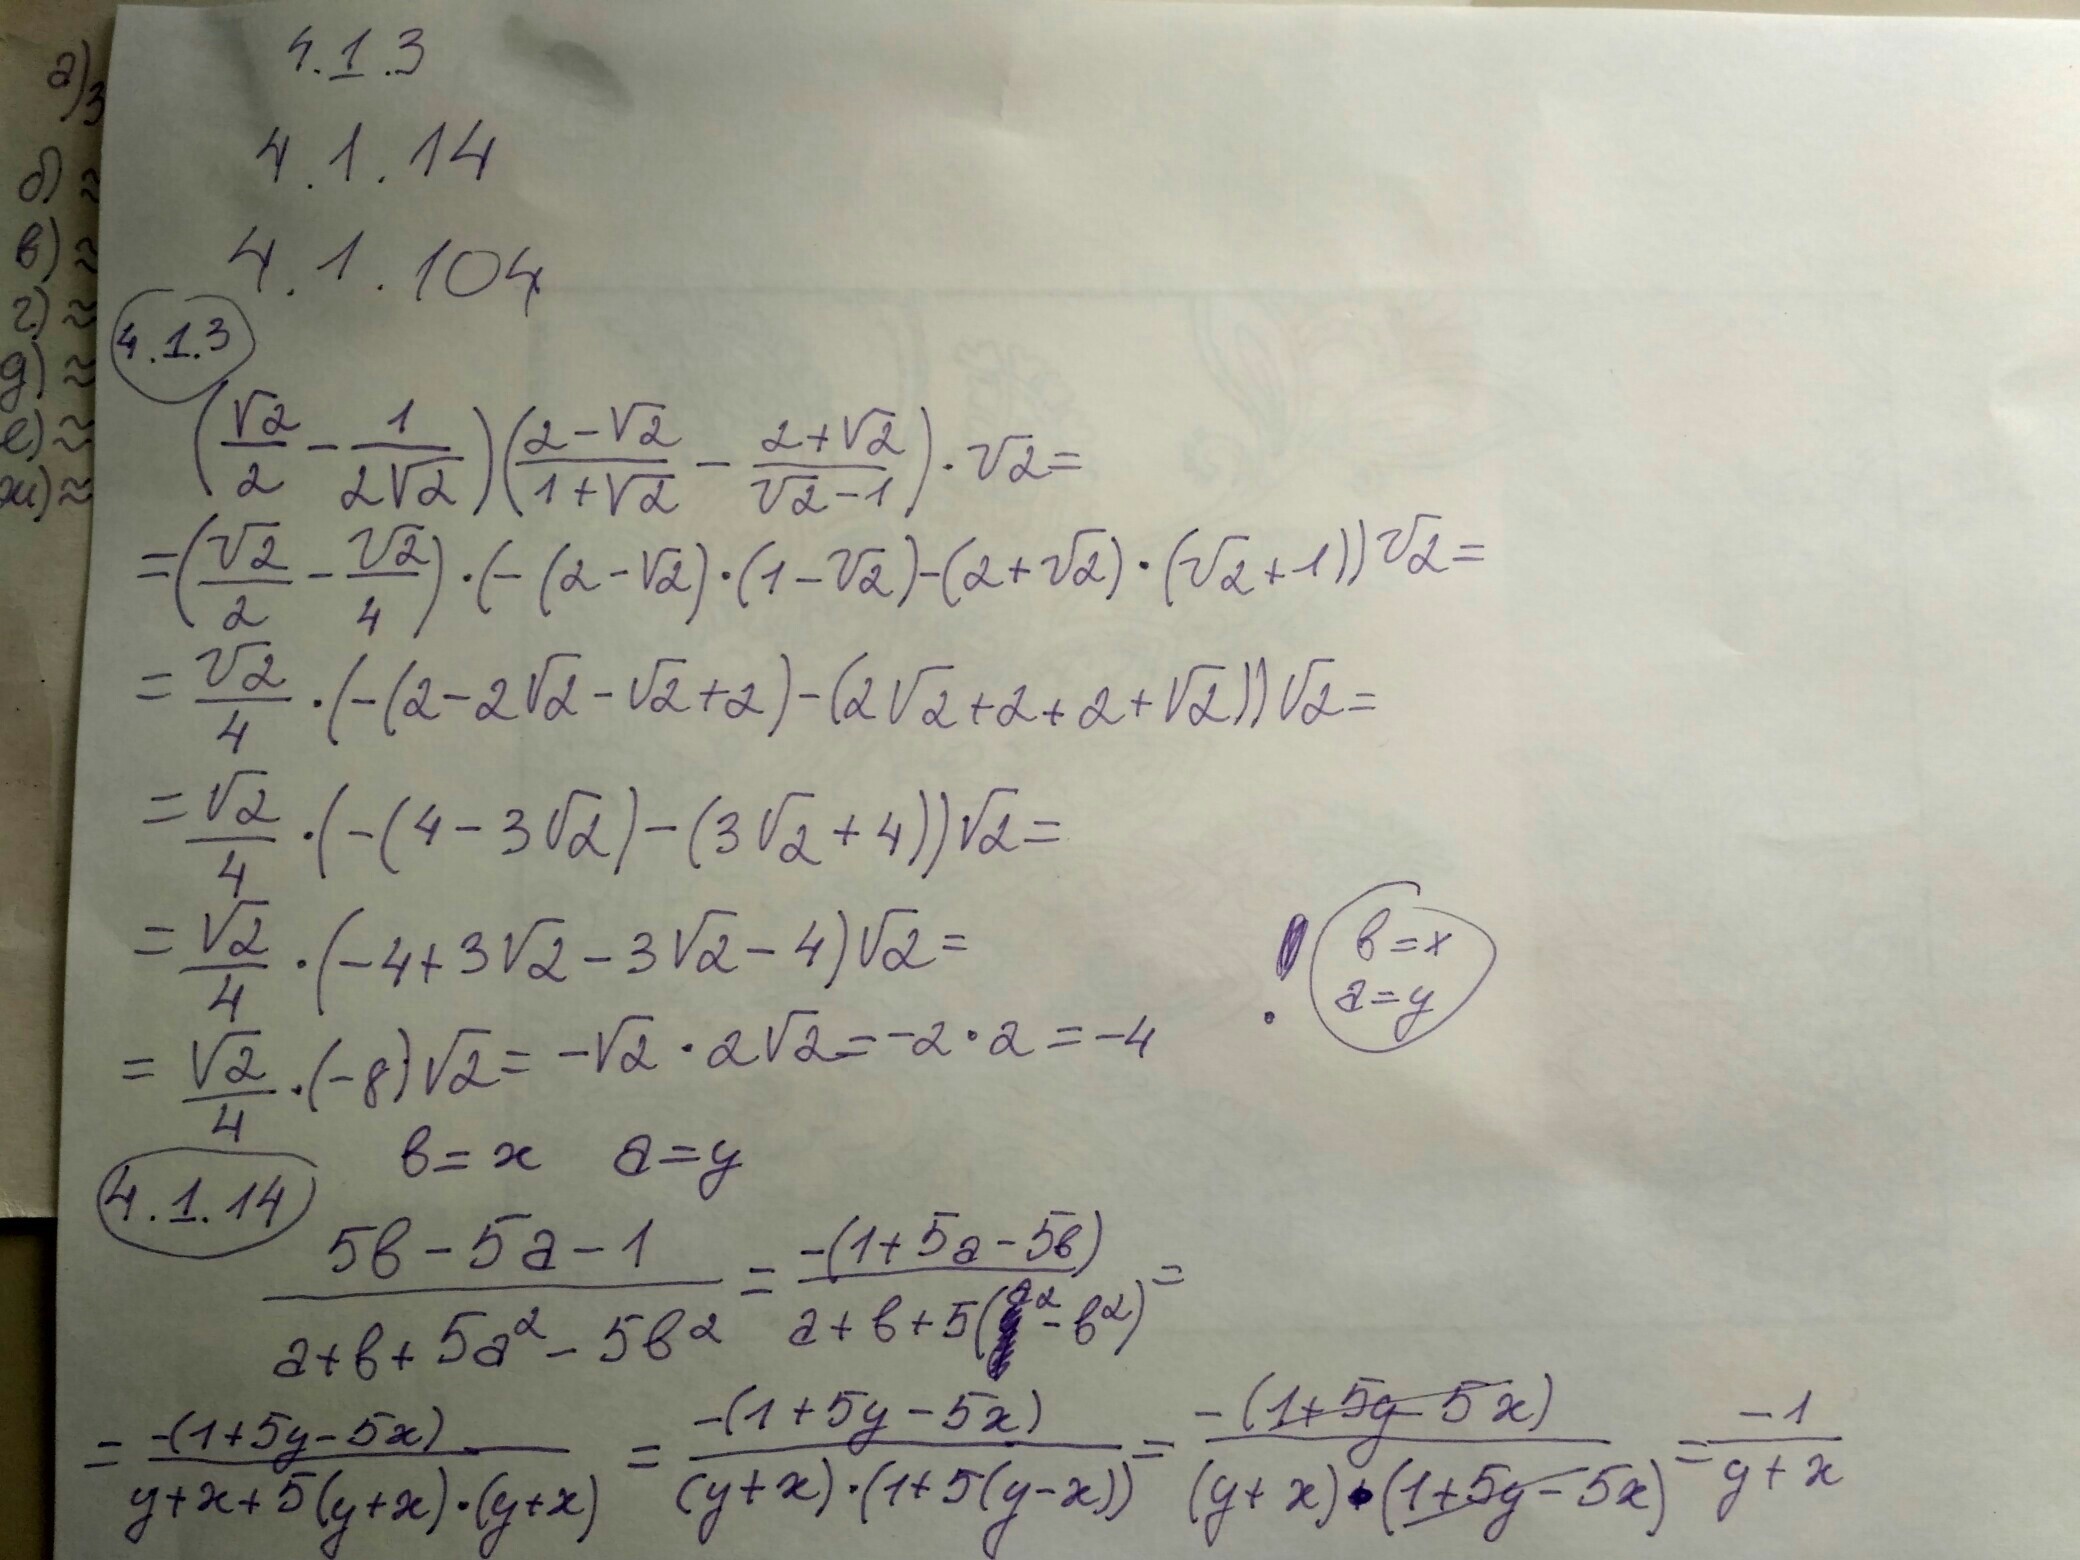 а) 3
б) ≈
в) ≈
г) ≈
д) ≈
е) ≈
ж) ≈
4.1.3
4.1.14
4.1.104
4.1.3
(√2/2 - 1/(2√2))((2-√2)/(1+√2) - (2+√2)/(√2-1)) · √2 =
= (√2/2 - √2/4) · (-(2-√2)·(1-√2)-(2+√2)·(√2+1))√2 =
= √2/4 · (-(2-2√2-√2+2)-(2√2+2+2+√2))√2 =
= √2/4 · (-(4-3√2)-(3√2+4))√2 =
= √2/4 · (-4+3√2-3√2-4)√2 =
в=x
a=y
= √2/4 · (-8)√2 = -√2 · 2√2 = -2·2 = -4
в=x a=y
4.1.14
(5в-5a-1)/(a+в+5a²-5в²) = -(1+5a-5в)/(a+в+5(a²-в²)) =
= -(1+5y-5x)/(y+x+5(y+x)·(y+x)) = -(1+5y-5x)/((y+x)·(1+5(y-x))) = -(1+5y-5x)/((y+x)·(1+5y-5x)) = -1/(y+x)